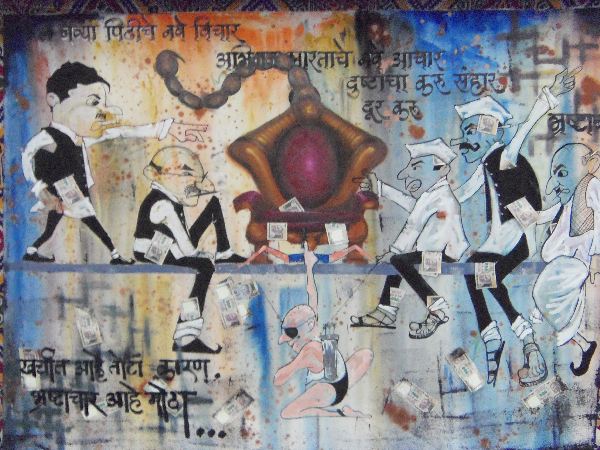 नव्या पिढीचे नवे विचार
अभिनव भारताचे नवे आचार
दुष्टांचा करु संहार
दूर करु भ्रष्टा
खुर्चीत आहे तोटा कारण.
भ्रष्टाचार आहे मोठा...